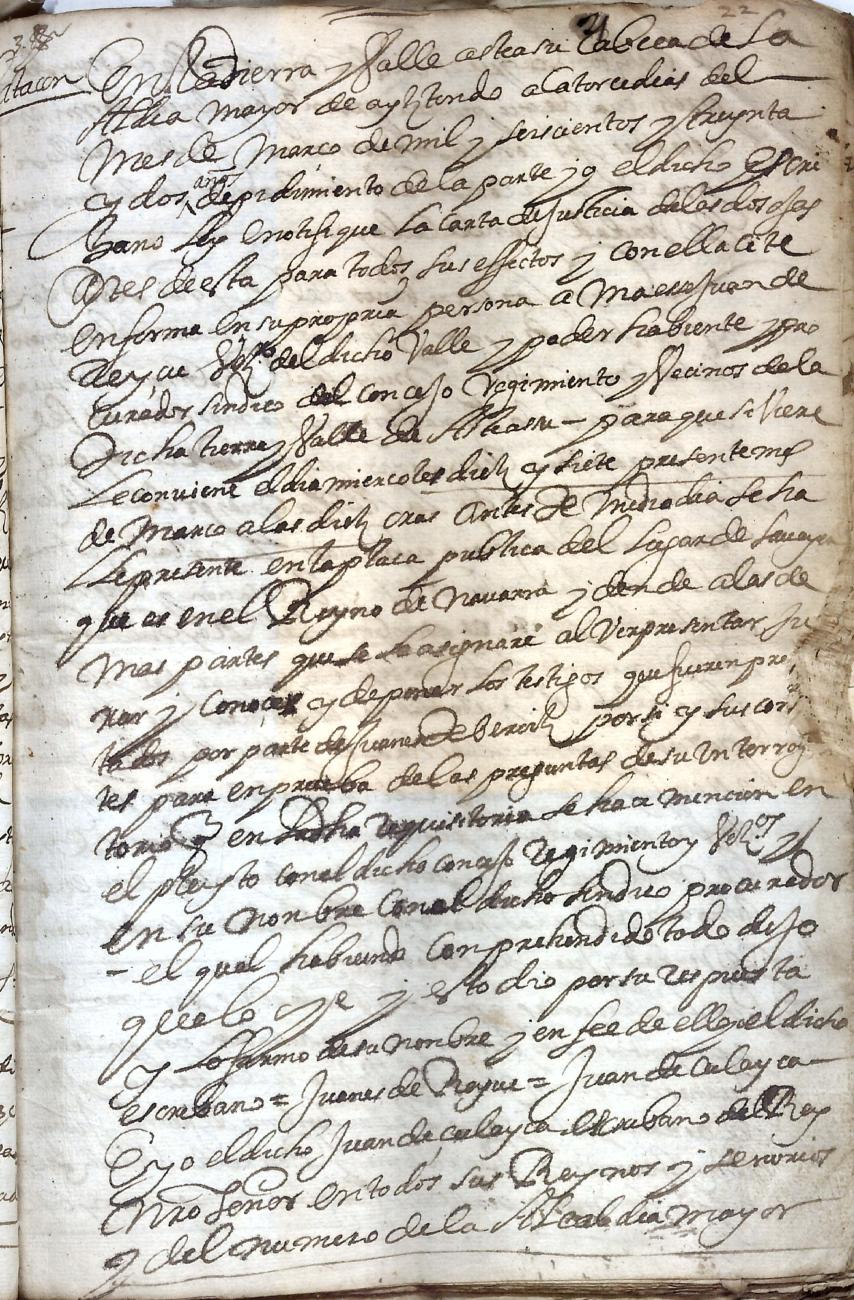 22
itacon
En la tierra y Valle asteasu Cabeca de La
Aldia mayor de ayztondo a Catorce dias del
Mes de Março de mil y seiscientos y treynta
y dos años de pidimiento de la parte yo el dicho escri
bano ley e notifique La Carta de Justicia de las dos ojas
Antes de esta para todos sus effectos y con ella cite
en forma en su propria persona a Maese Juan de
vzº del dicho Valle y poder habiente y pro
curador sindico del Concejo Regimiento y Vecinos de la
Dicha tierra y Valle de Asteasu – para que si Viere
Le conviene el dia miercoles diez y siete presente mes
de Março a las diez oras Antes de medio dia se ha
lle presente en la plaça publica del Lugar de
que es en el Reyno de Navarra y dende a las de
mas partes que se le asignare al Ver presentar Ju
rar y Conocer y deponer Los testigos que fueren presen
tados por parte de Juanes de beroiz por si y sus consor
tes para en prueba de las preguntas de su Interroga
torio q en La dha requisitoria se haze mencion en
el pleyto con el dicho concejo regimiento y Vezos y
en su nombre Con el dicho sindico procurador
– el qual habiendo Conprehendido todo dijo
que lo oye y esto dio por su respuesta
y Lo firmo de su nonbre y en fee de ello yo el dicho
escribano = Juanes de = Juan de Culayca –
E yo el dicho Juan de culayca escribano del Rey
Nro Señor en todos sus Reynos y señorios
y del numero de la Alcaldia mayor